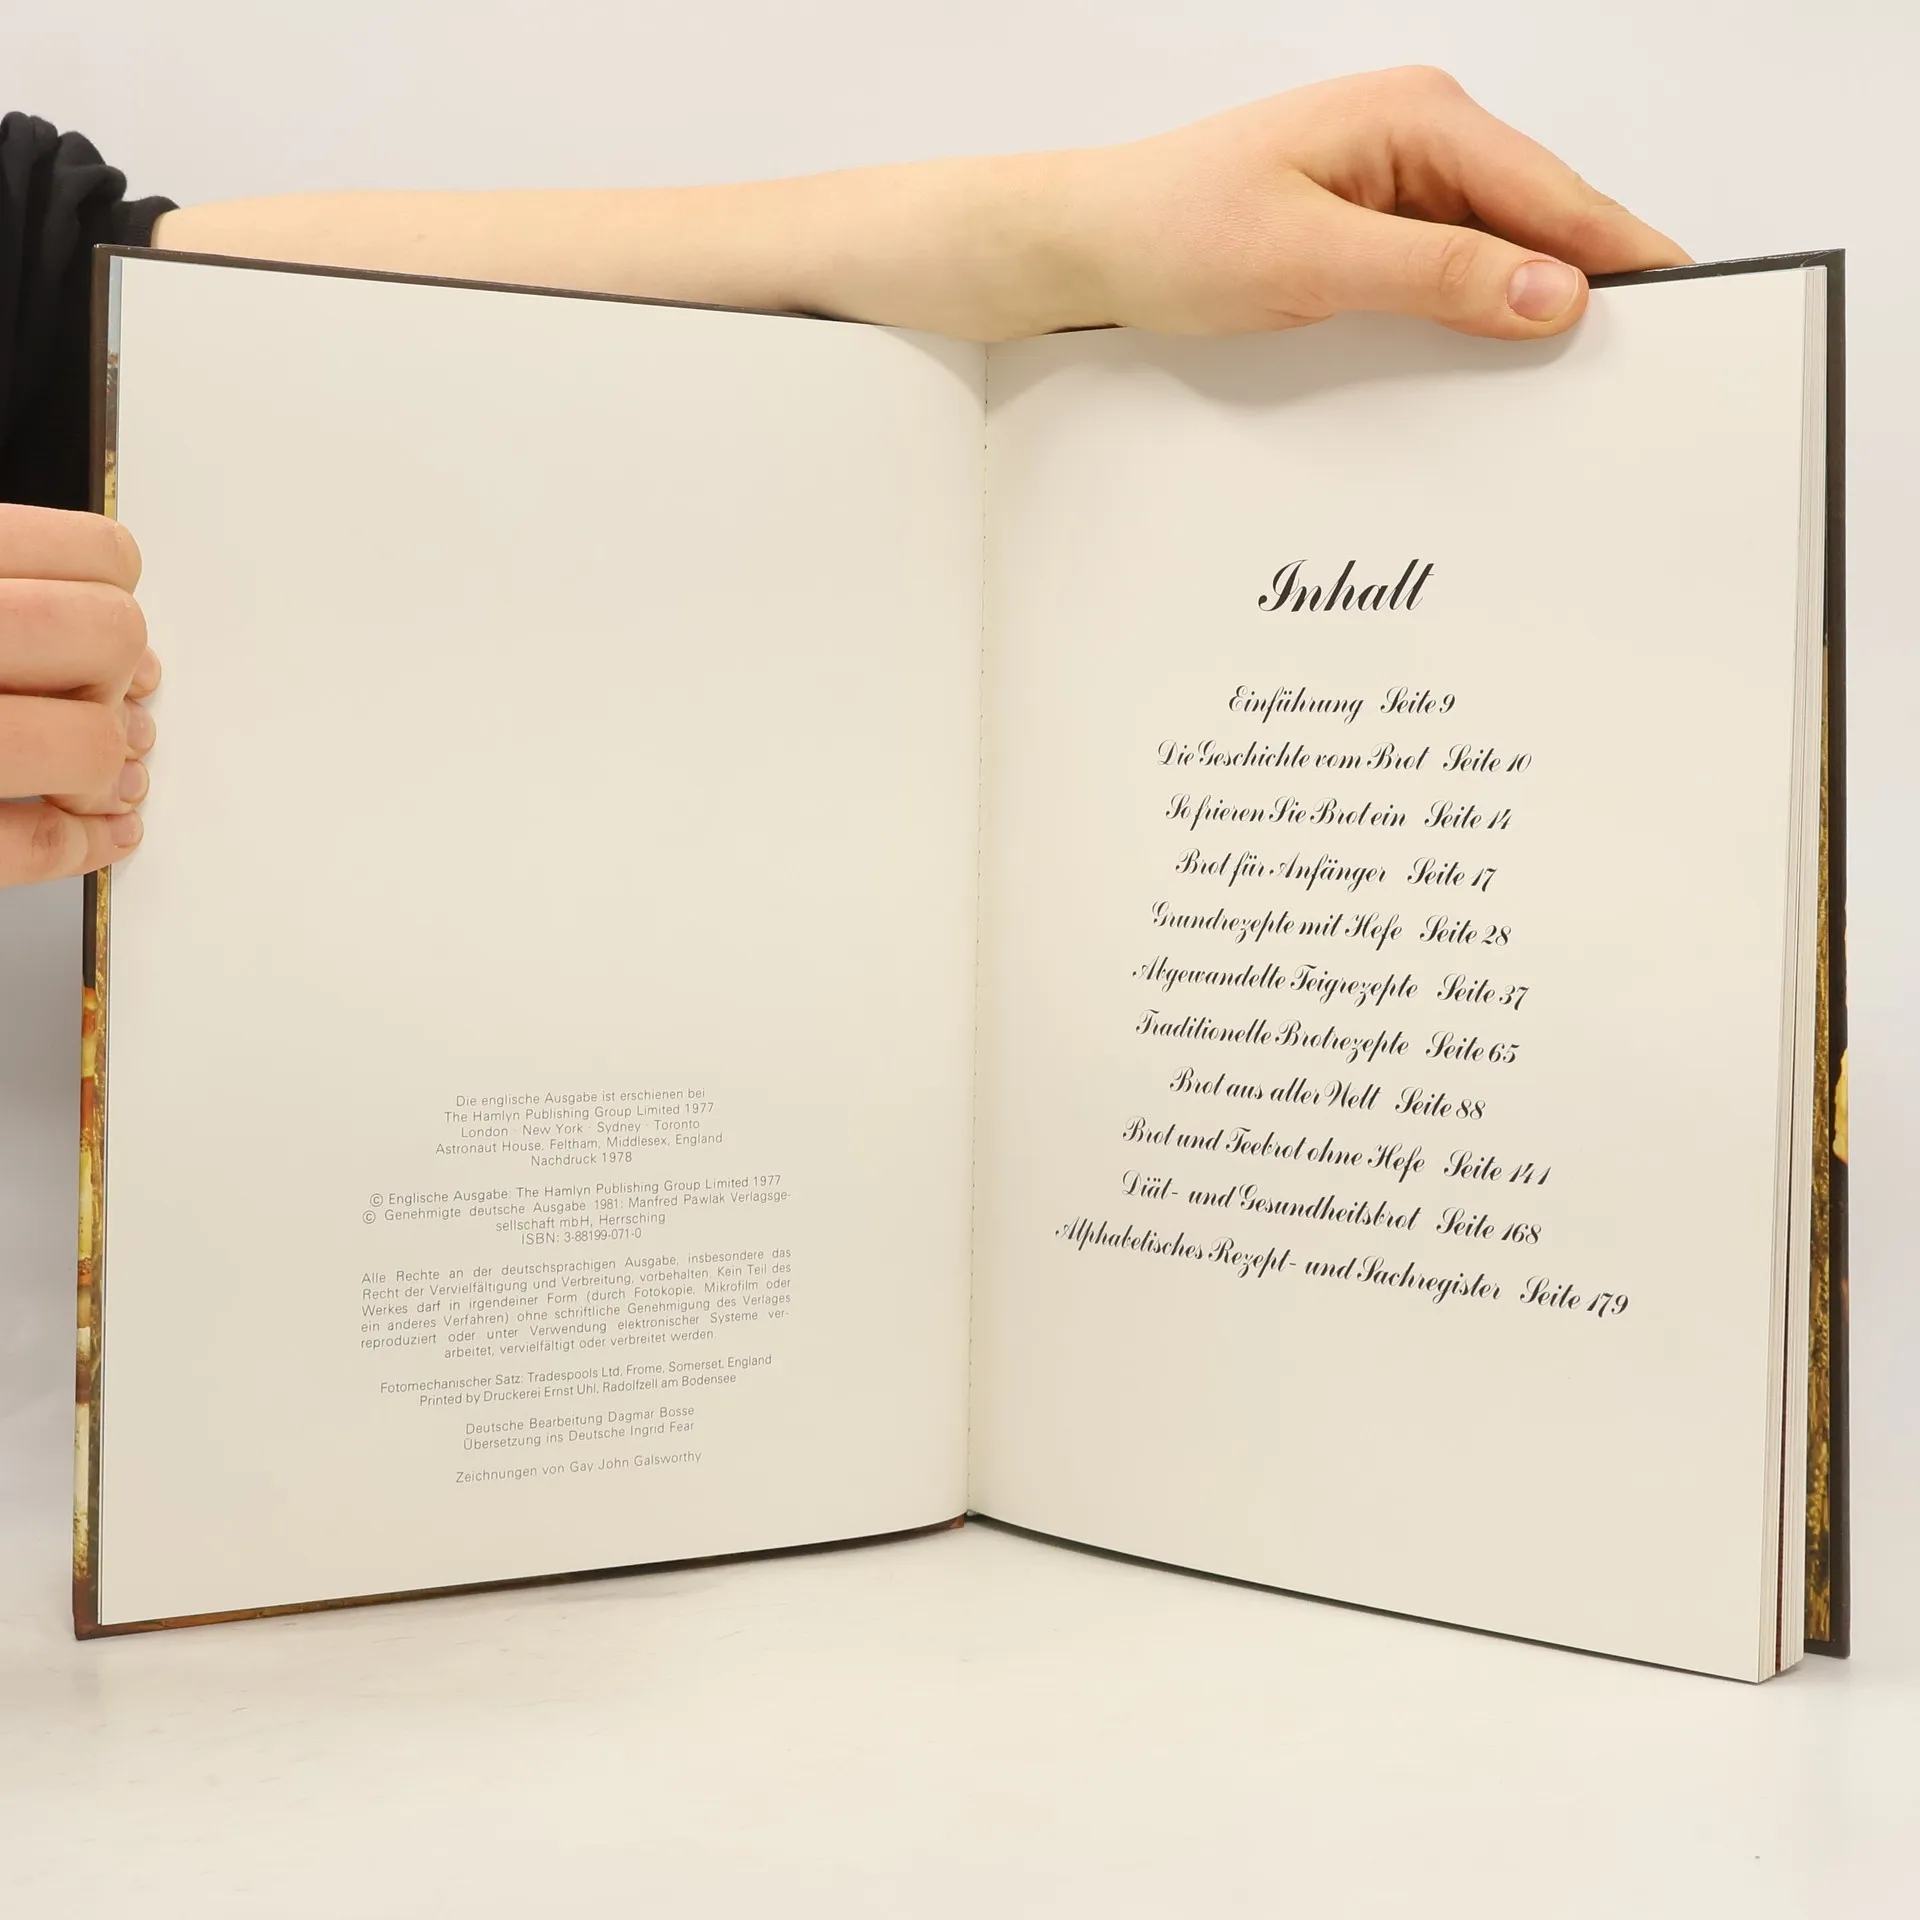 Die englische Ausgabe ist erschienen bei
The Hamlyn Publishing Group Limited 1977
London · New York · Sydney · Toronto
Astronaut House, Feltham, Middlesex, England
Nachdruck 1978
© Englische Ausgabe: The Hamlyn Publishing Group Limited 1977
© Genehmigte deutsche Ausgabe 1981: Manfred Pawlak Verlagsge-
sellschaft mbH, Herrsching
ISBN: 3-88199-071-0
Alle Rechte an der deutschsprachigen Ausgabe, insbesondere das
Recht der Vervielfältigung und Verbreitung, vorbehalten. Kein Teil des
Werkes darf in irgendeiner Form (durch Fotokopie, Mikrofilm oder
ein anderes Verfahren) ohne schriftliche Genehmigung des Verlages
reproduziert oder unter Verwendung elektronischer Systeme ver-
arbeitet, vervielfältigt oder verbreitet werden.
Fotomechanischer Satz: Tradespools Ltd, Frome, Somerset, England
Printed by Druckerei Ernst Uhl, Radolfzell am Bodensee
Deutsche Bearbeitung Dagmar Bosse
Übersetzung ins Deutsche Ingrid Fear
Zeichnungen von Gay John Galsworthy
Inhalt
Einführung Seite 9
Die Geschichte vom Brot Seite 10
So frieren Sie Brot ein Seite 14
Brot für Anfänger Seite 17
Grundrezepte mit Hefe Seite 28
Abgewandelte Teigrezepte Seite 37
Traditionelle Brotrezepte Seite 65
Brot aus aller Welt Seite 88
Brot und Teebrot ohne Hefe Seite 141
Diät- und Gesundheitsbrot Seite 168
Alphabetisches Rezept- und Sachregister Seite 179